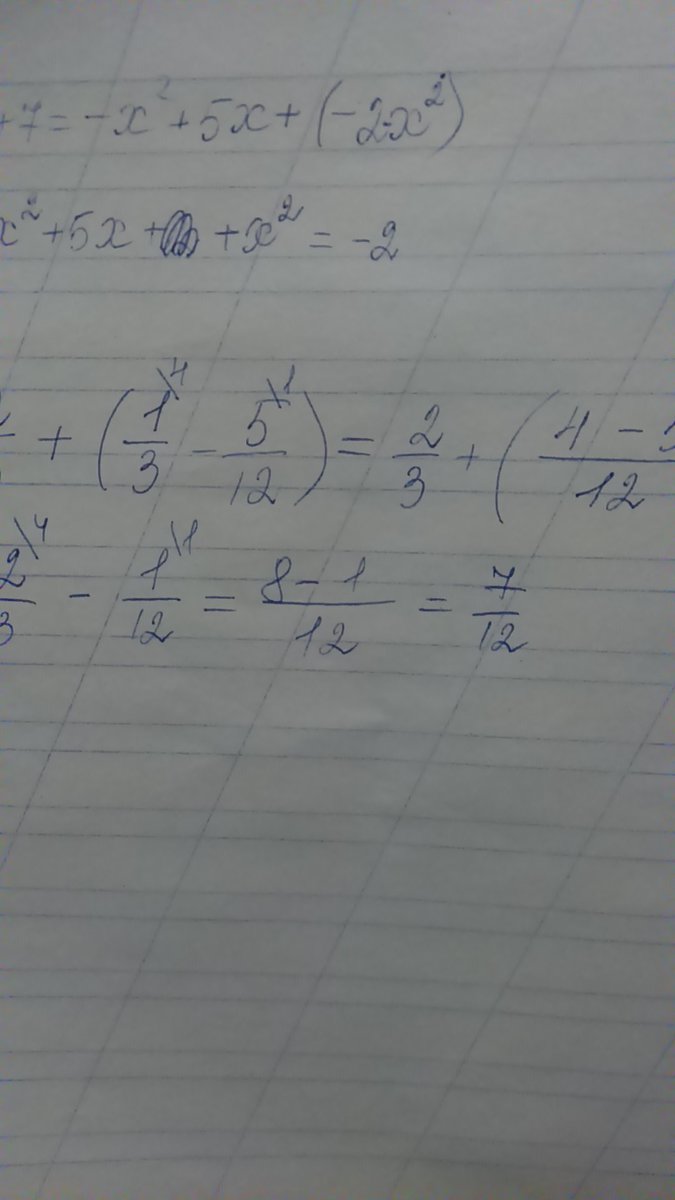 +7 = -x² + 5x + (-2-x²)
x² + 5x + + x² = -2
+ (1\4/3 - 5\1/12) = 2/3 + (4 -/12
2\4/3 - 1\1/12 = 8 - 1/12 = 7/12